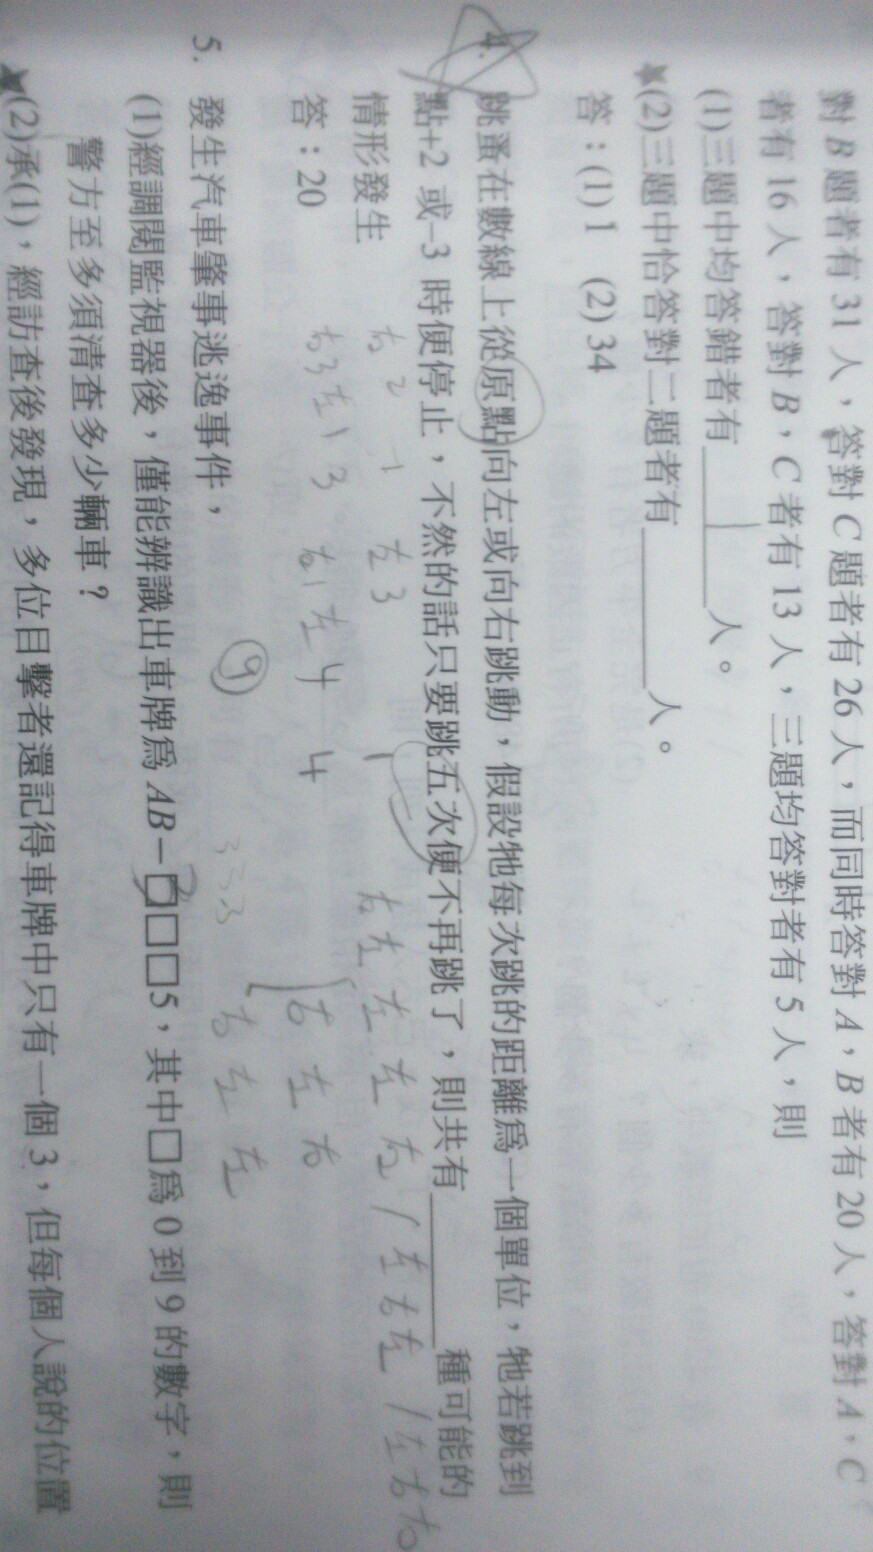 對 B 題者有 31 人，答對 C 題者有 26 人，而同時答對 A，B 者有 20 人，答對 A，C
者有 16 人，答對 B，C 者有 13 人，三題均答對者有 5 人，則
(1)三題中均答錯者有 1 人。
★(2)三題中恰答對二題者有 人。
答：(1) 1 (2) 34
4. 跳蚤在數線上從原點向左或向右跳動，假設牠每次跳的距離為一個單位，牠若跳到
點+2 或−3 時便停止，不然的話只要跳五次便不再跳了，則共有 種可能的
情形發生
答：20
右2 1 左3 1 右左左左右 / 左右左 / 左右右
右3左1 3 右1左4 4 右左右
⑨ 右左左
5. 發生汽車肇事逃逸事件，
(1)經調閱監視器後，僅能辨識出車牌為 AB−□□□5，其中□為 0 到 9 的數字，則
警方至多須清查多少輛車？
★(2)承(1)，經訪查後發現，多位目擊者還記得車牌中只有一個 3，但每個人說的位置